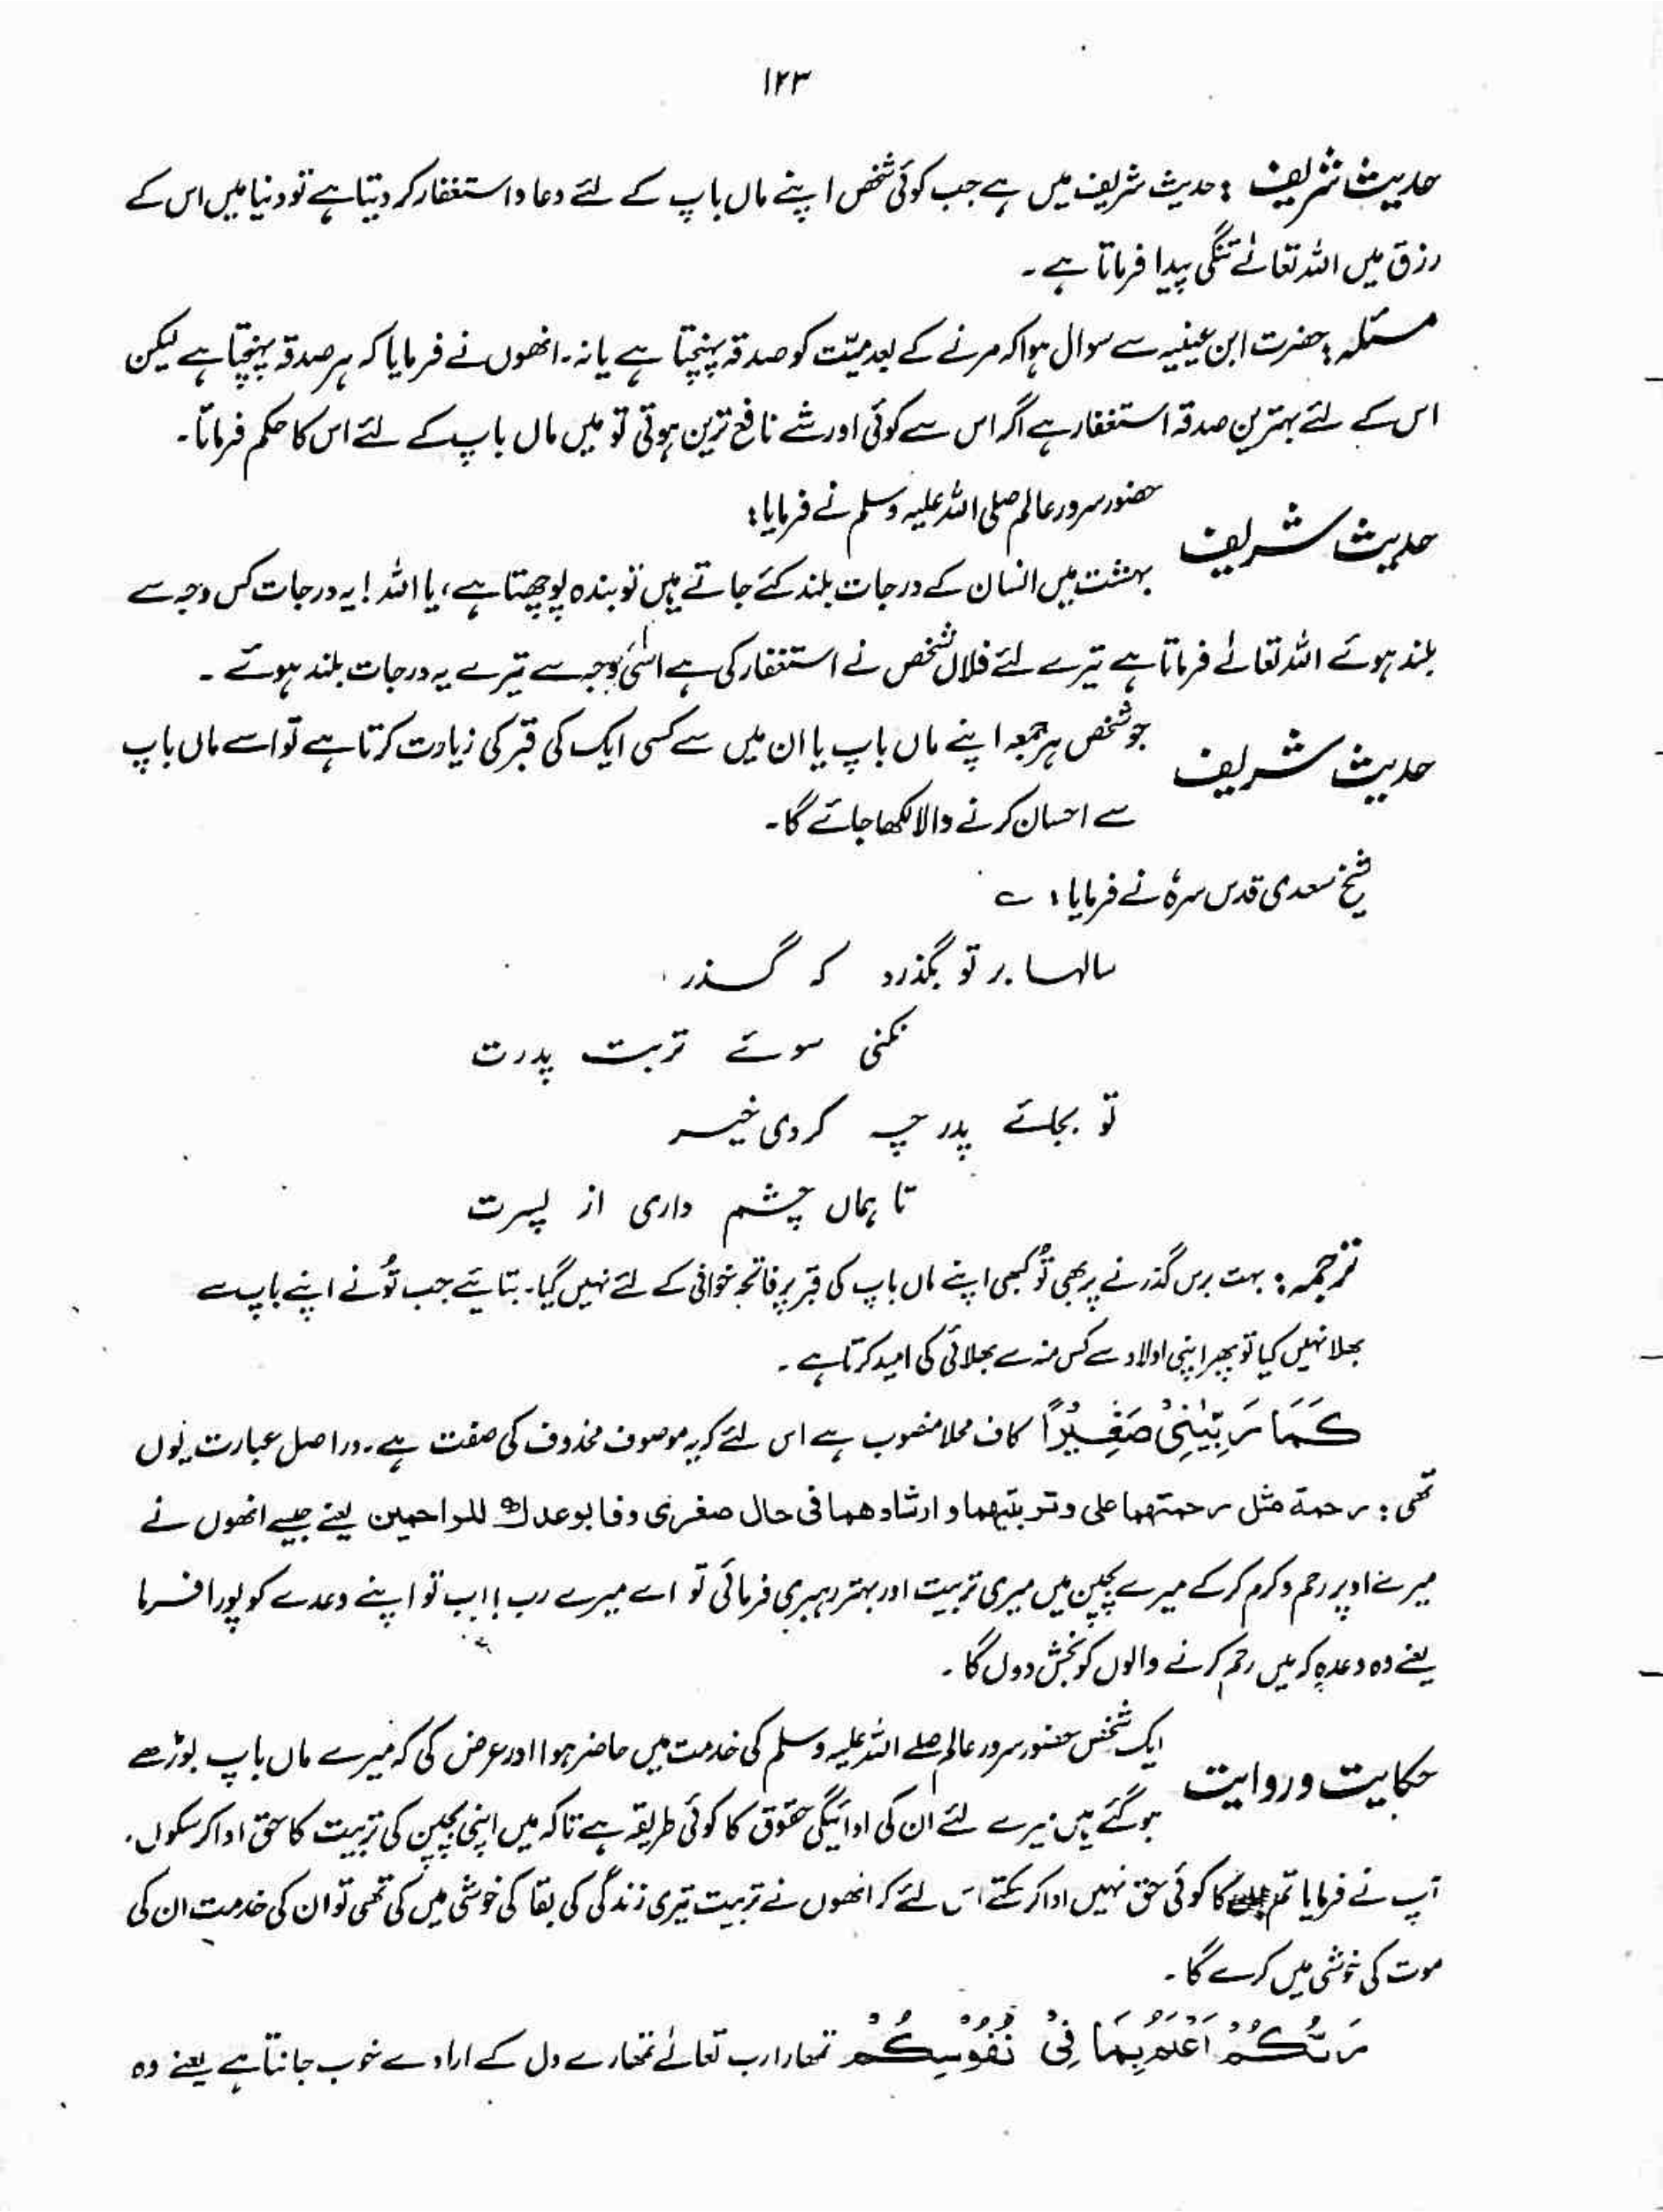 ۱۲۳
حدیث شریف : حدیث شریف میں ہے جب کوئی شخص اپنے ماں باپ کے لئے دعا و استغفار کر دیتا ہے تو دنیا میں اس کے
رزق میں اللہ تعالےٰ تنگی پیدا فرماتا ہے ۔
مسئلہ : حضرت ابن عیینیہ سے سوال ہوا کہ مرنے کے بعد میّت کو صدقہ پہنچتا ہے یا نہ ۔ انھوں نے فرمایا کہ ہر صدقہ پہنچتا ہے لیکن
اس کے لئے بہترین صدقہ استغفار ہے اگر اس سے کوئی اور شے نافع ترین ہوتی تو میں ماں باپ کے لئے اس کا حکم فرماتا ۔
حدیث شریف حضور سرور عالم صلی اللہ علیہ وسلم نے فرمایا :
بہشت میں انسان کے درجات بلند کئے جاتے ہیں تو بندہ پوچھتا ہے ، یا اللہ ! یہ درجات کس وجہ سے
بلند ہوئے اللہ تعالےٰ فرماتا ہے تیرے لئے فلاں شخص نے استغفار کی ہے اسی وجہ سے تیرے یہ درجات بلند ہوئے ۔
حدیث شریف جو شخص ہر جمعہ اپنے ماں باپ یا ان میں سے کسی ایک کی قبر کی زیارت کرتا ہے تو اسے ماں باپ
سے احسان کرنے والا لکھا جائے گا ۔
شیخ سعدی قدس سرہٗ نے فرمایا : ے
سالہا بر تو بگذرد کہ گذر
نکنی سوئے تربت پدرت
تو بجائے پدر چہ کردی خیر
تا ہماں چشم داری از پسرت
ترجمہ : بہت برس گذرنے پر بھی تُو کبھی اپنے ماں باپ کی قبر پر فاتحہ خوانی کے لئے نہیں گیا ۔ بتائیے جب تُو نے اپنے باپ سے
بھلا نہیں کیا تو پھر اپنی اولاد سے کس منہ سے بھلائی کی امید کرتا ہے ۔
كَمَا رَبَّيٰنِيْ صَغِيْرًا کاف محلا منصوب ہے اس لئے کہ یہ موصوف محذوف کی صفت ہے ۔ دراصل عبارت یوں
تھی : رحمة مثل رحمتهما علی وتربیتهما و ارشادهما فی حال صغری وفا بوعدك للراحمین یعنے جیسے انھوں نے
میرے اوپر رحم و کرم کر کے میرے بچپن میں میری تربیت اور بہتر رہبری فرمائی تو اے میرے رب ! اب تو اپنے وعدے کو پورا فرما
یعنے وہ وعدہ کہ میں رحم کرنے والوں کو بخش دوں گا ۔
حکایت و روایت ایک شخص حضور سرور عالم صلے اللہ علیہ وسلم کی خدمت میں حاضر ہوا اور عرض کی کہ میرے ماں باپ بوڑھے
ہو گئے ہیں میرے لئے ان کی ادائیگی حقوق کا کوئی طریقہ ہے تاکہ میں اپنی بچپن کی تربیت کا حق ادا کر سکوں ۔
آپ نے فرمایا تم کا کوئی حق نہیں ادا کر سکتے اس لئے کہ انھوں نے تربیت تیری زندگی کی بقا کی خوشی میں کی تھی تو ان کی خدمت ان کی
موت کی خوشی میں کرے گا ۔
رَبُّكُمْ اَعْلَمُ بِمَا فِيْ نُفُوْسِكُمْ تمھارا رب تعالےٰ تمھارے دل کے ارادے خوب جانتا ہے یعنے وہ